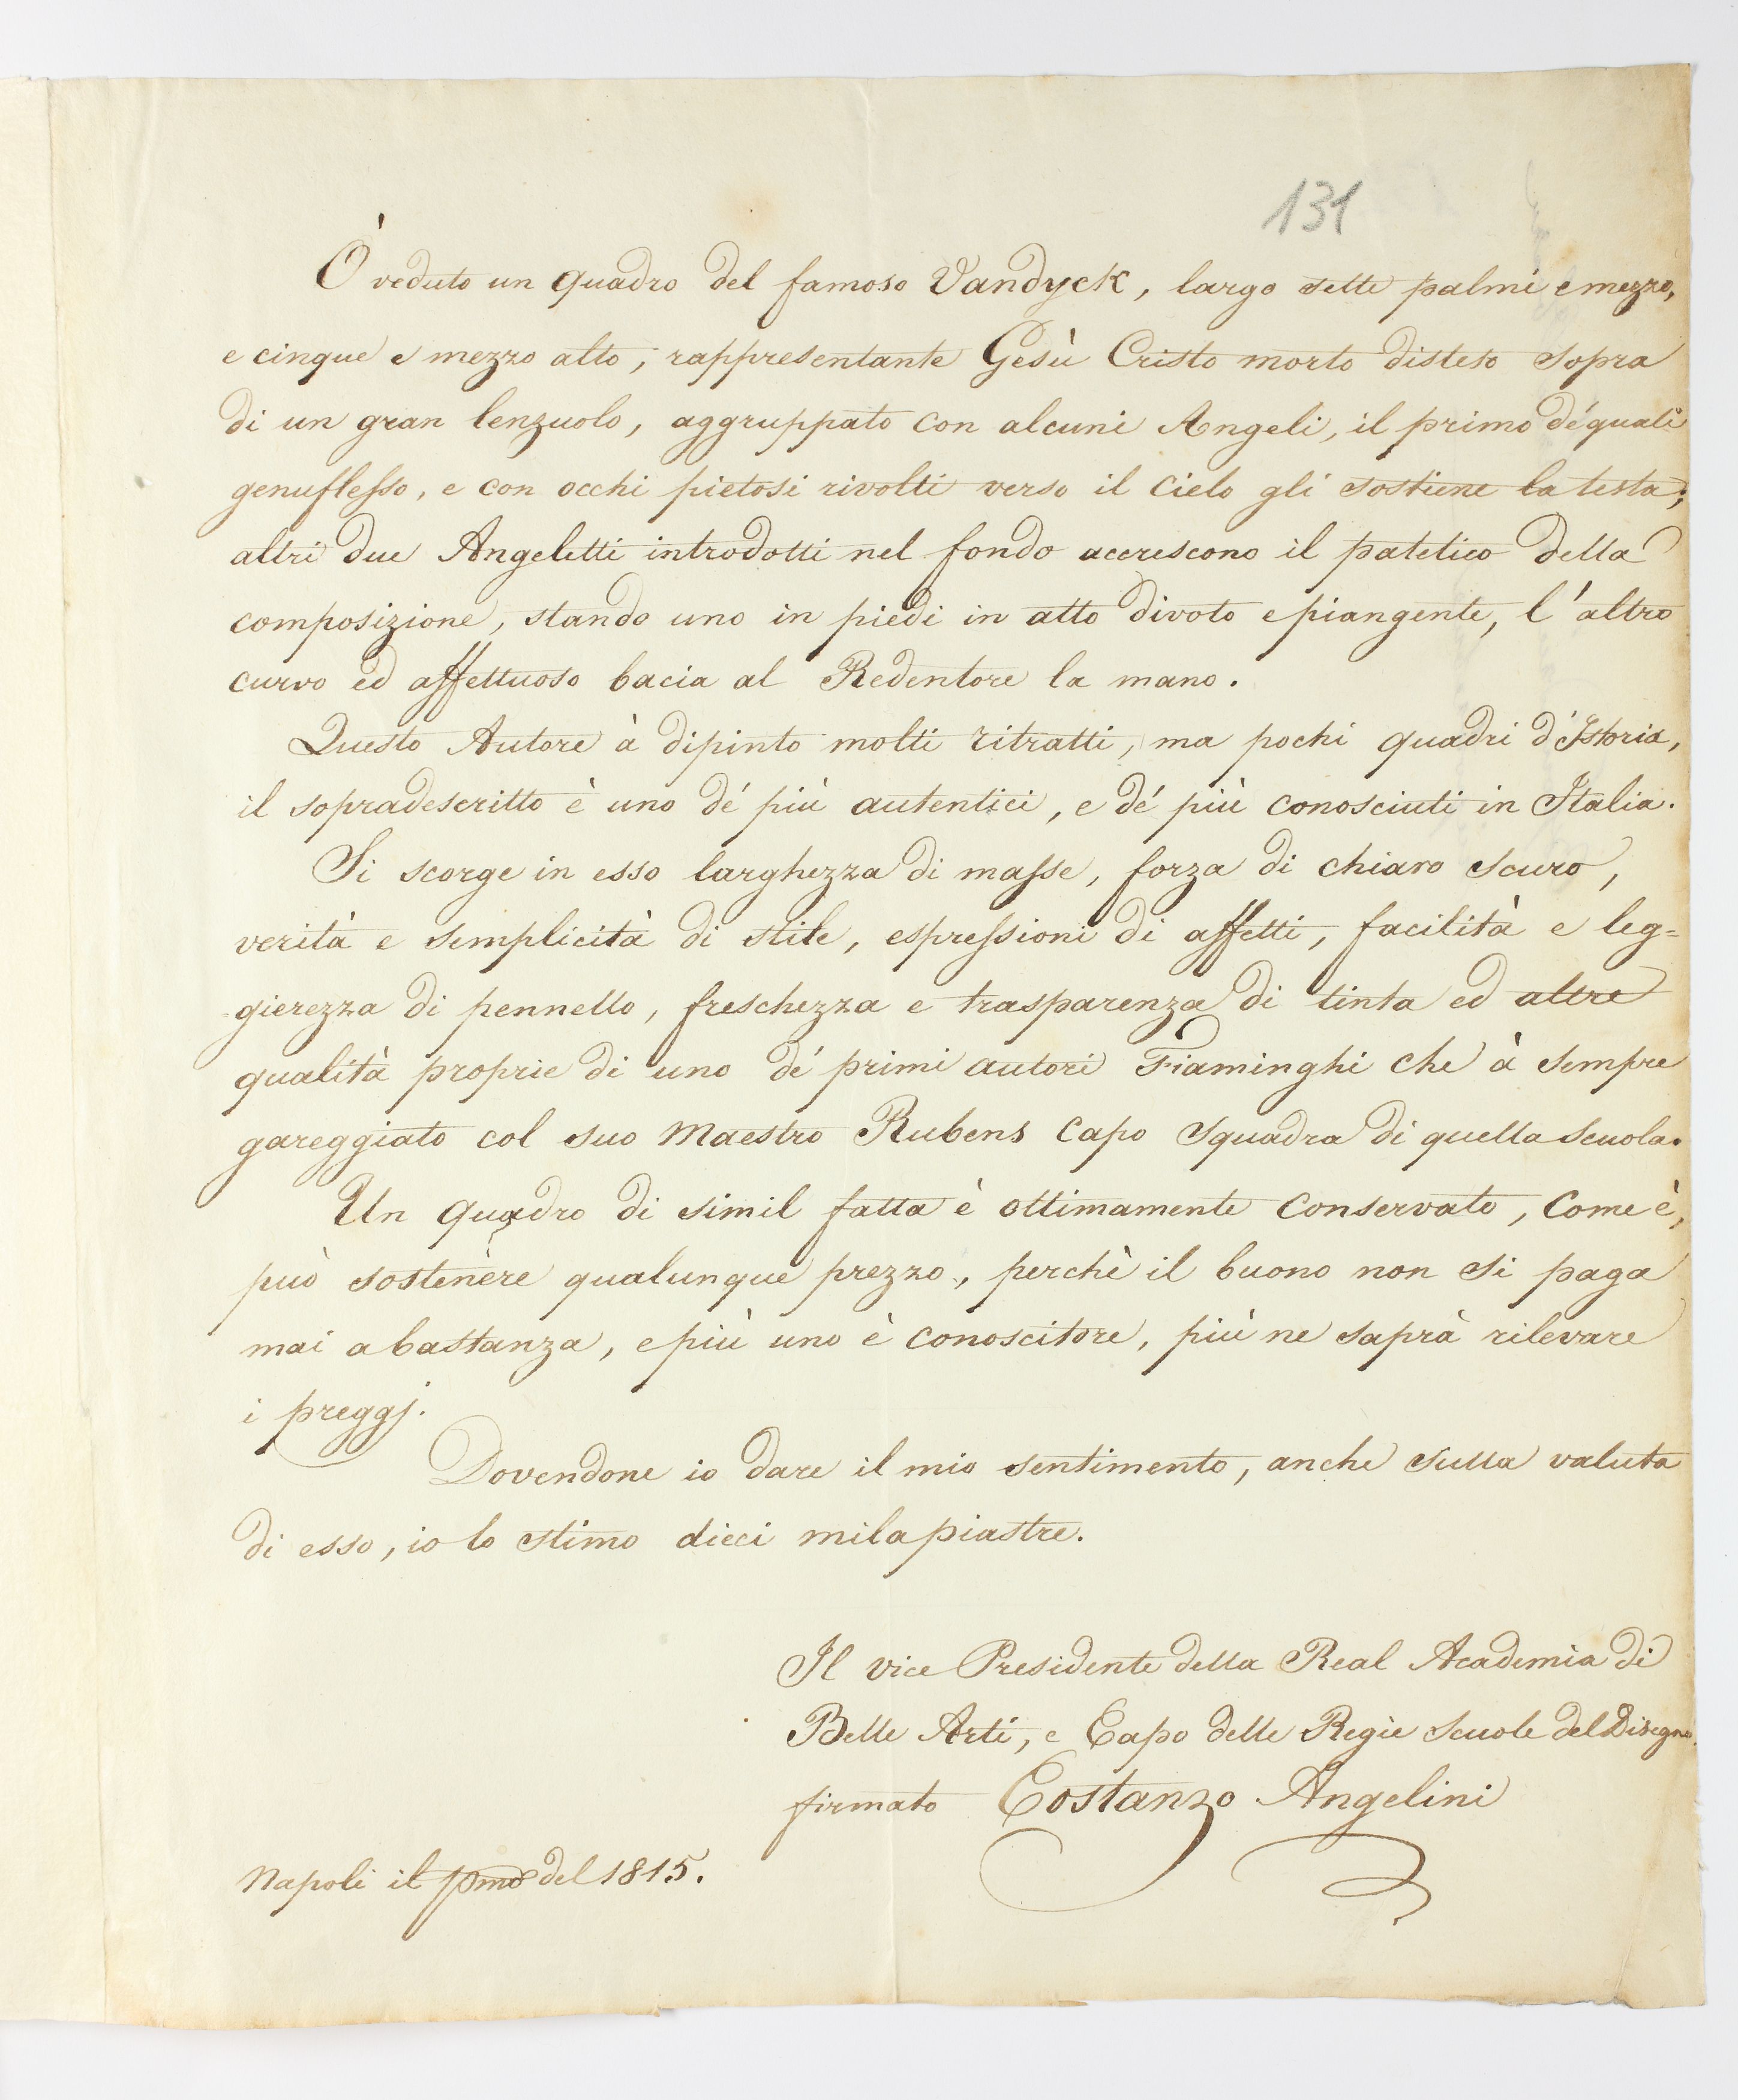 131
Ò veduto un quadro del famoso Vandyck, largo sette palmi e mezzo,
e cinque e mezzo alto, rappresentante Gesù Cristo morto disteso sopra
di un gran lenzuolo, aggruppato con alcuni Angeli, il primo de' quali
genuflesso, e con occhi pietosi rivolti verso il cielo gli sostiene la testa;
altri due Angeletti introdotti nel fondo accrescono il patetico della
composizione, stando uno in piedi in atto divoto e piangente, l'altro
curvo ed affettuoso bacia al Redentore la mano.
Questo Autore à dipinto molti ritratti, ma pochi quadri d'Istoria,
il sopradescritto è uno de' più autentici, e de' più conosciuti in Italia.
Si scorge in esso larghezza di masse, forza di chiaro scuro,
verità e semplicità di stile, espressioni di affetti, facilità e leg=
=gierezza di pennello, freschezza e trasparenza di tinta ed altre
qualità proprie di uno de' primi autori Fiaminghi che à sempre
gareggiato col suo Maestro Rubens Capo Squadra di quella Scuola.
Un quadro di simil fatta è ottimamente conservato, come è,
può sostenère qualunque prezzo, perchè il buono non si paga
mai abastanza, e più uno è conoscitore, più ne saprà rilevare
i preggj.
Dovendone io dare il mio sentimento, anche sulla valuta
di esso, io lo stimo dieci mila piastre.
Il vice Presidente della Real Academia di
Belle Arti, e Capo delle Regie Scuole del Disegno
firmato Costanzo Angelini
Napoli il pmo del 1815.